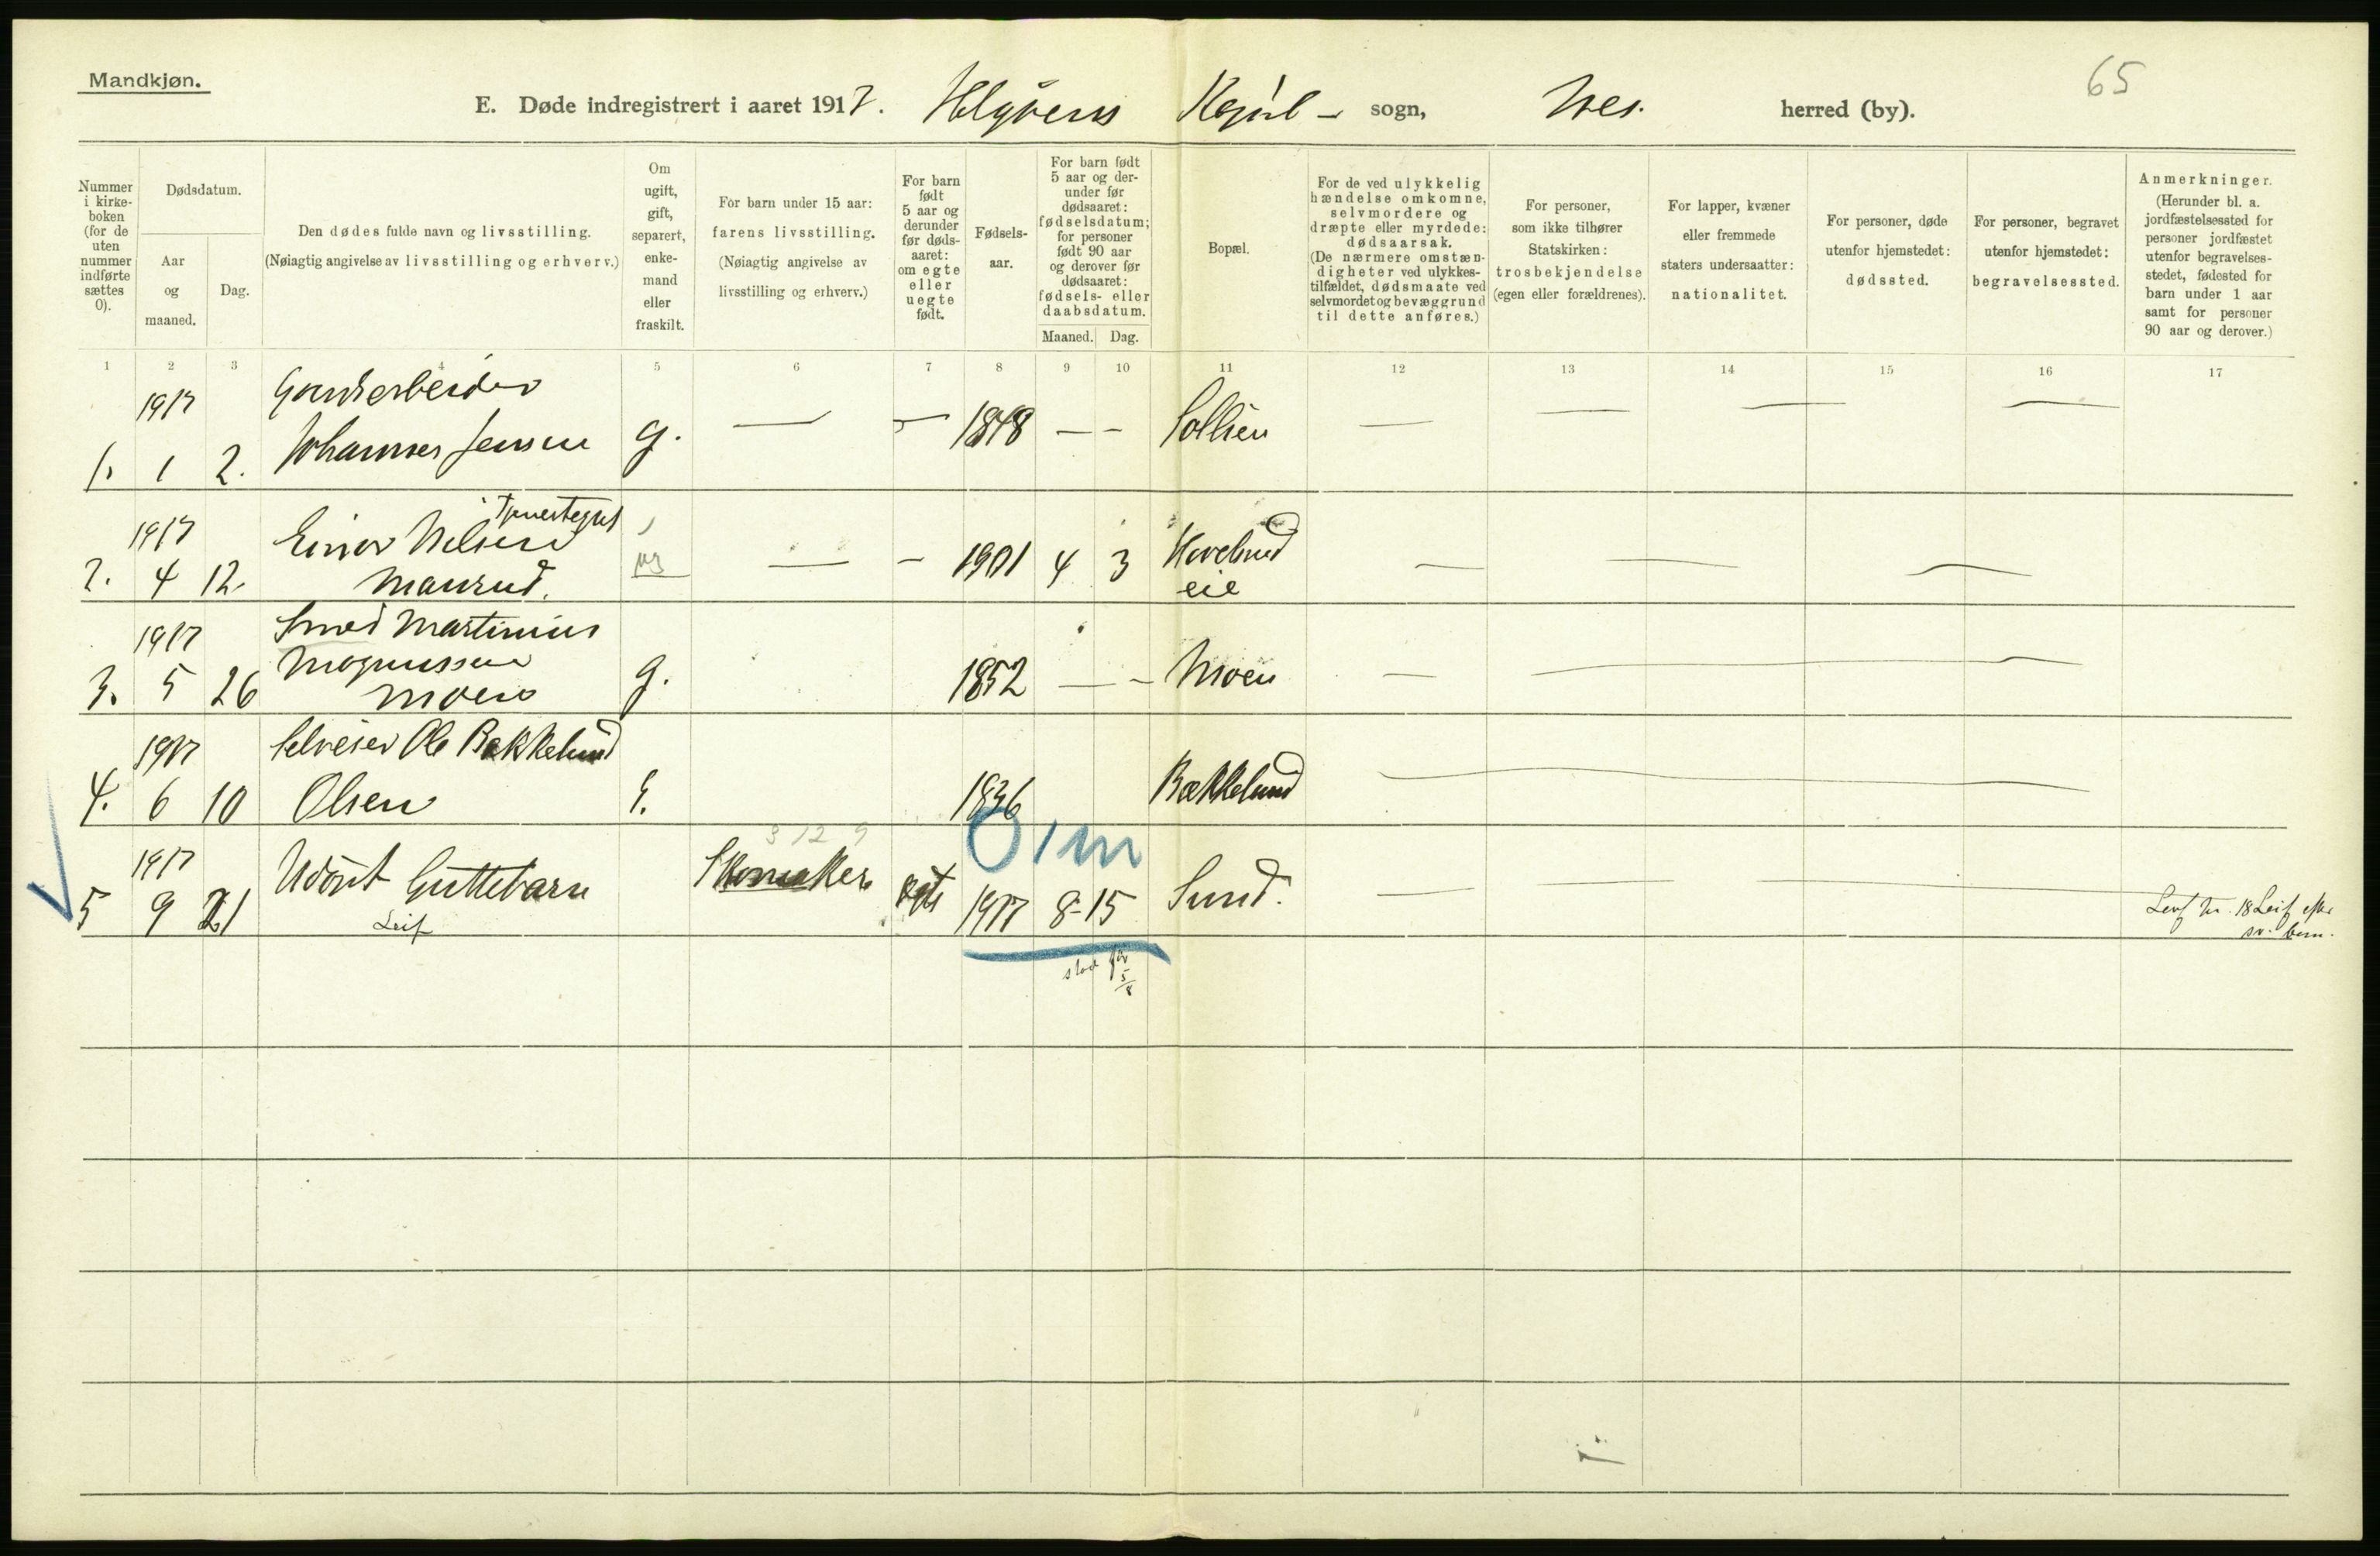 Mandkjøn.
65
E. Døde indregistrert i aaret 1917. Helgøens Kapel - sogn, Nes. herred (by).
Nummer i kirke-boken (for de uten nummer indførte sættes 0).
Dødsdatum.
Aar og maaned.
Dag.
Den dødes fulde navn og livsstilling.
(Nøiagtig angivelse av livsstilling og erhverv.)
Om ugift, gift, separert, enke-mand eller fraskilt.
For barn under 15 aar: farens livsstilling.
(Nøiagtig angivelse av livsstilling og erhverv.)
For barn født 5 aar og derunder før døds-aaret: om egte eller uegte født.
Fødsels-aar.
For barn født 5 aar og der-under før dødsaaret: fødselsdatum; for personer født 90 aar og derover før dødsaaret: fødsels- eller daabsdatum.
Maaned. Dag.
Bopæl.
For de ved ulykkelig hændelse omkomne, selvmordere og dræpte eller myrdede: dødsaarsak.
(De nærmere omstæn-digheter ved ulykkes-tilfældet, dødsmaate ved selvmordet og bevæggrund til dette anføres.)
For personer, som ikke tilhører Statskirken: trosbekjendelse (egen eller forældrenes).
For lapper, kvæner eller fremmede staters undersaatter: nationalitet.
For personer, døde utenfor hjemstedet: dødssted.
For personer, begravet utenfor hjemstedet: begravelsessted.
Anmerkninger.
(Herunder bl. a. jordfæstelsessted for personer jordfæstet utenfor begravelses-stedet, fødested for barn under 1 aar samt for personer 90 aar og derover.)
1 2 3 4 5 6 7 8 9 10 11 12 13 14 15 16 17
1917 Gaardsarbeider
1. 1 2. Johannes Jensen g. — — 1848 — — Sollien — — — —
1917 Einar Nilsen Tjenestegut
2. 4 12. Maurud. ug — — 1901 4 3 Hovelsrud eie — — —
1917 Smed Martinius
Magnussen
3. 5 26 Moen g. 1852 — — Moen — —
1917 Selveier Ole Bækkelund
4. 6 10 Olsen E. 1836 Bækkelund —
3 12 9
0 1 m
1917 Udøpt Guttebarn Skomaker egte
5 9 21 Leif 1917 8-15 Sund. — — —
Levf nr. 18 Leif efter
sv. bem.
stod før 5/8